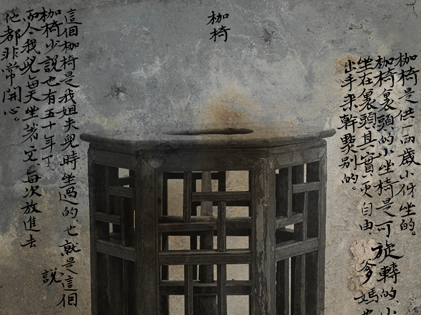 枷椅
枷椅是供一兩歲小伢坐的。
枷椅裏頭的小坐椅是可旋轉的小
坐在裏頭其實更自由 爹媽
出手來幹點別的
這個枷椅是我姐夫兒時坐過的也就是這個
說
枷椅少說也有五十年了
而今我兒每天坐著它每次放進去
他都非常開心。